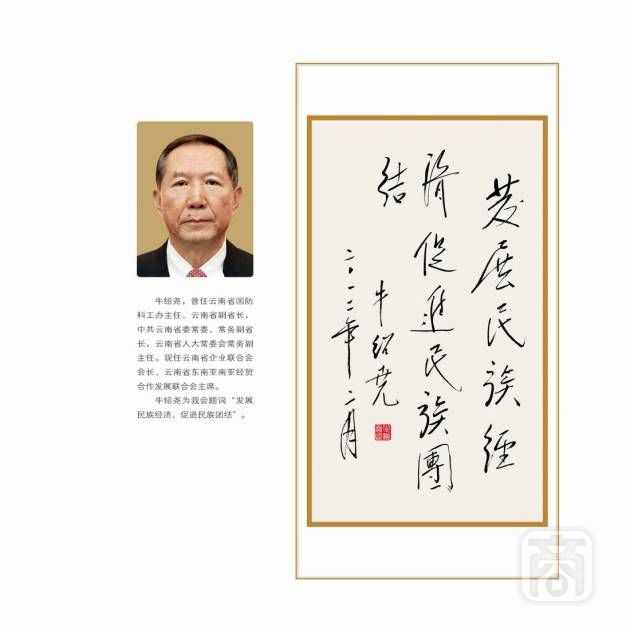 牛绍尧，曾任云南省国防
科工办主任、云南省副省长，
中共云南省委常委、常务副省
长，云南省人大常委会常务副
主任。现任云南省企业联合会
会长、云南省东南亚南亚经贸
合作发展联合会主席。
牛绍尧为我会题词“发展
民族经济、促进民族团结”。
發展民族經
濟促進民族團
结
牛绍尧
二〇一二年二月
商